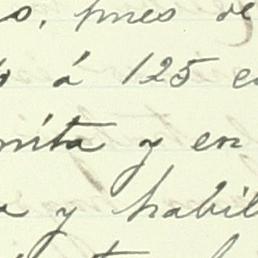 o, pues de
á 125 e
nita y en
a y habil